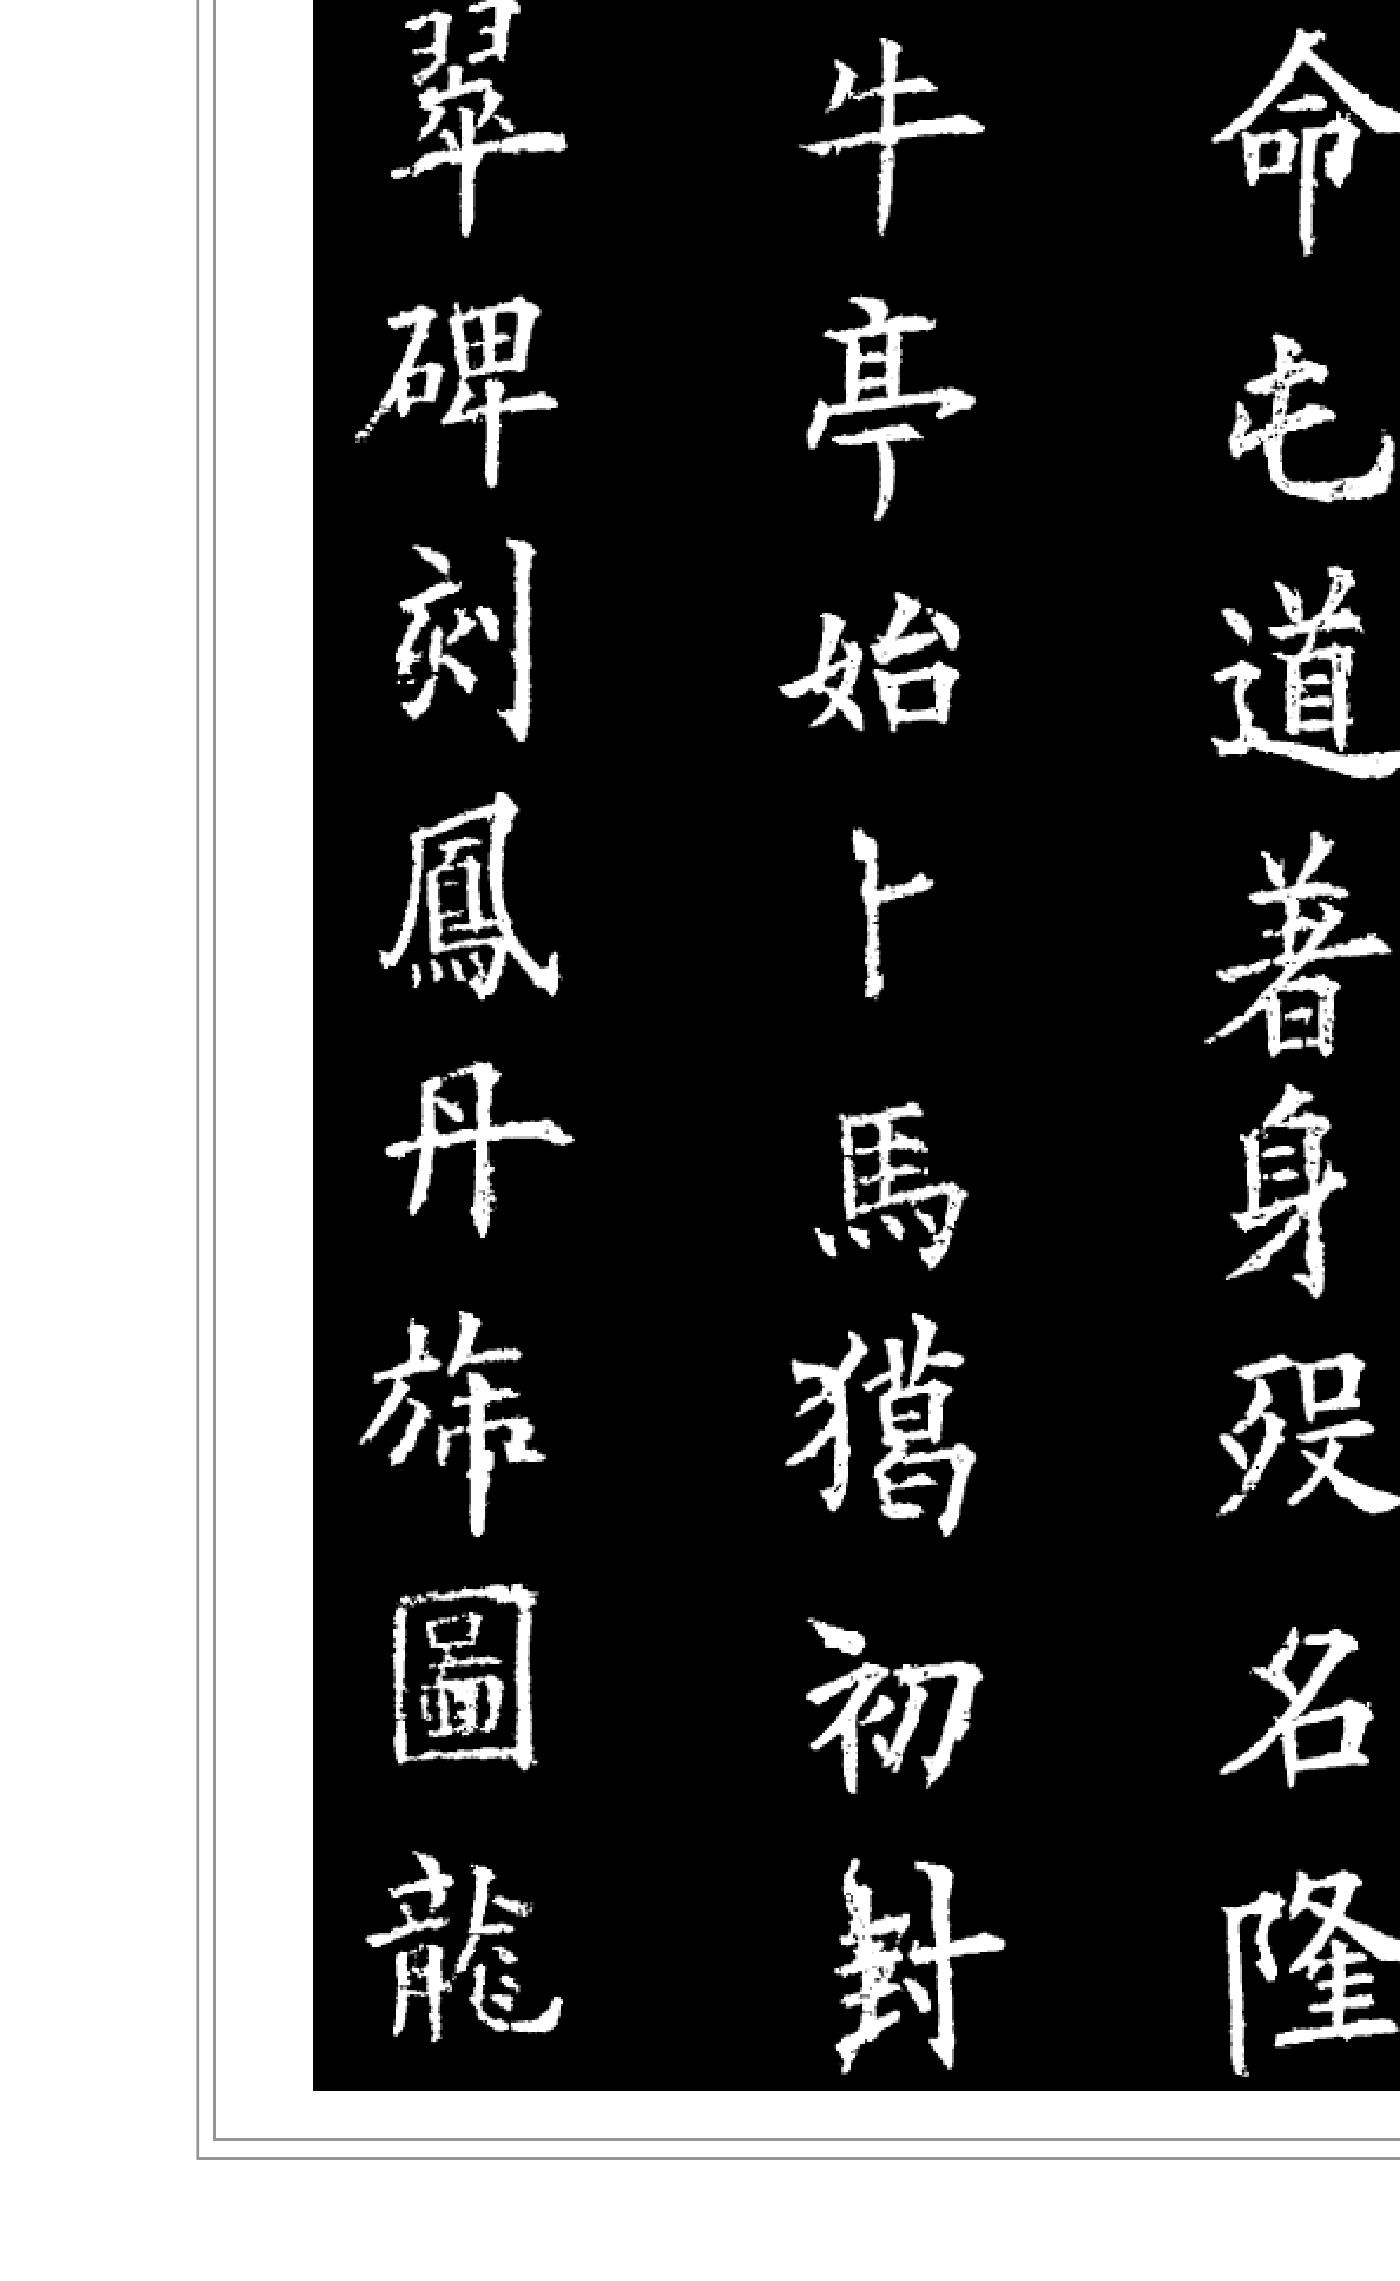 命屯道著身歿名隆
牛亭始卜馬獦初封
翠碑刻鳳丹旐圖龍